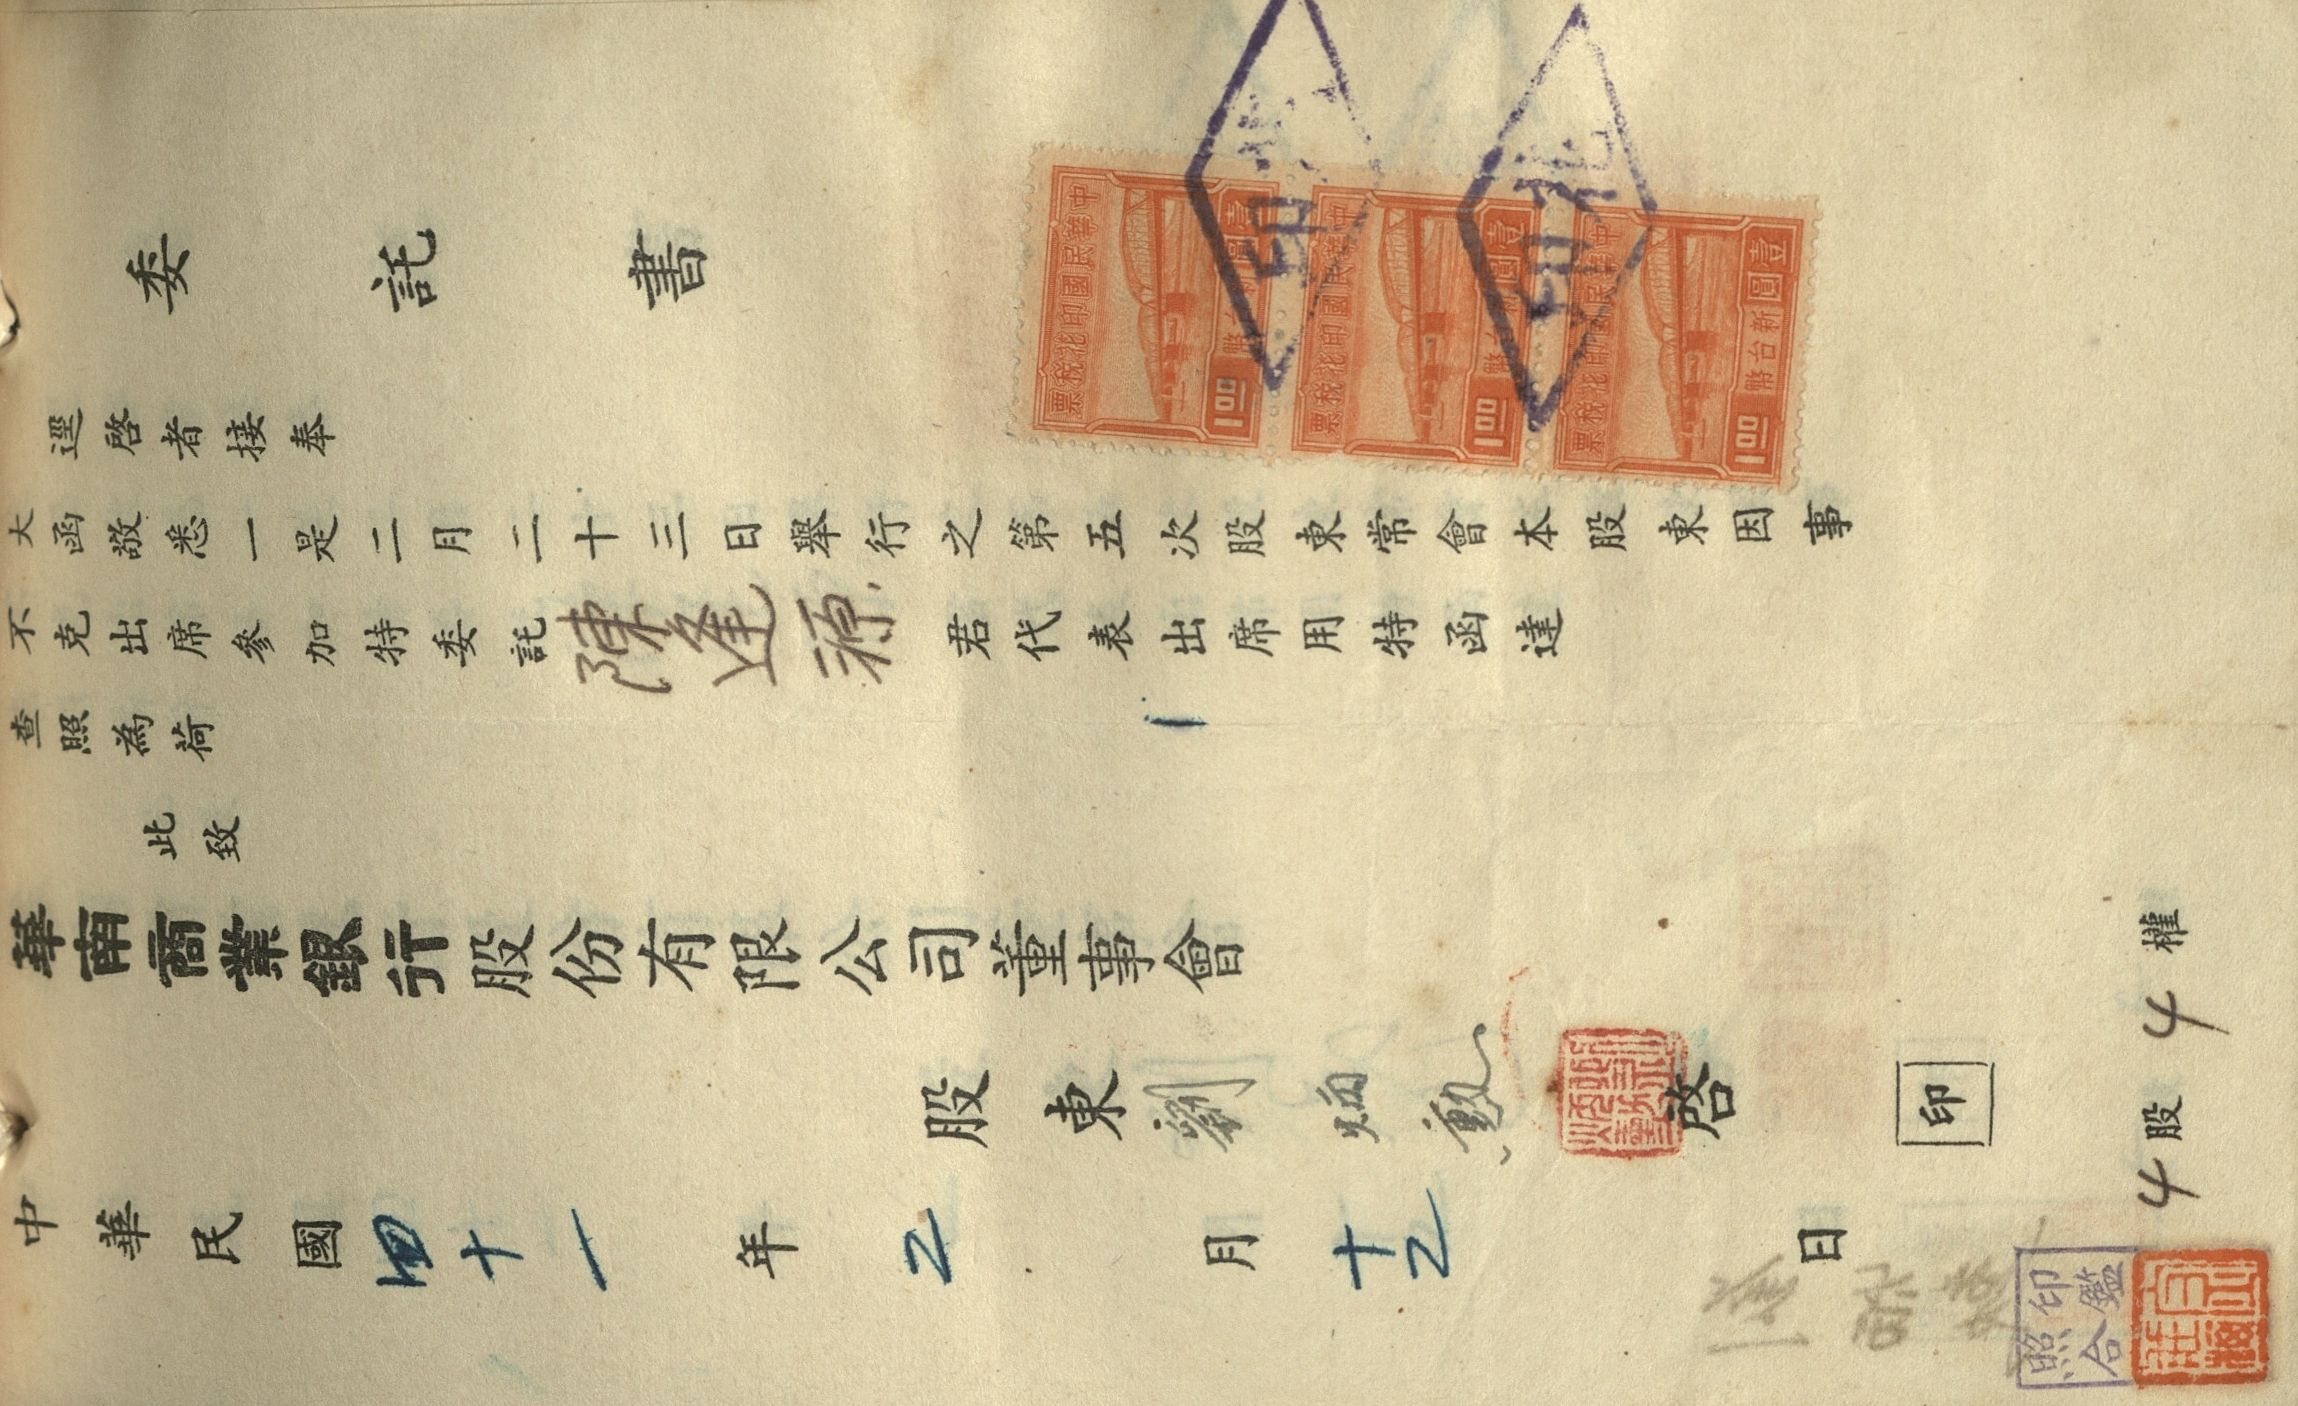 委託書
逕啓者接奉
大函敬悉一是二月二十三日舉行之第五次股東常會本股東因事
不克出席參加特委託陳逢源君代表出席用特函達
查照為荷
此致
華南商業銀行股份有限公司董事會
股東劉炳勳啓
印
中華民國四十一年2月十2日
4股4權
印鑑照合
中華民國印花稅票
壹圓
新台幣
1.00
中華民國印花稅票
壹圓
新台幣
1.00
中華民國印花稅票
壹圓
新台幣
1.00
北
印